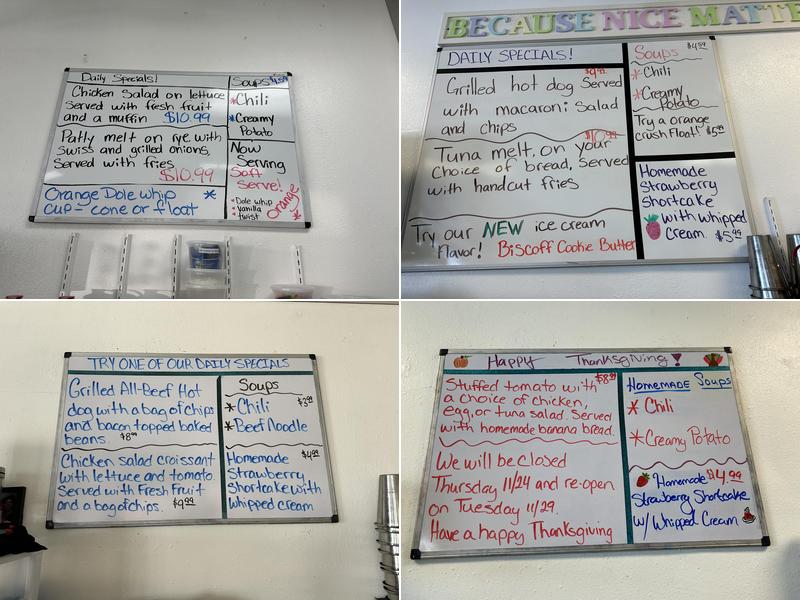 Daily Specials!
Chicken Salad on lettuce
Served with fresh fruit
and a muffin $10.99
Patly melt on rye with
Swiss and grilled onions,
Served with fries
$10.99
Orange Dole whip *
cup - cone or float
Soups
* Chili
* Creamy
Potato
Now
Serving
Soft
Serve!
• Dole whip
• vanilla
• twist
Orange
*
BECAUSE NICE MATTE
DAILY SPECIALS!
$9.99
Grilled hot dog Served
with macaroni Salad
and chips
$10.99
Tuna melt, on your
Choice of bread, Served
with handcut fries
Try our NEW ice cream
Flavor! Biscoff Cookie Butter
Soups $4.59
* Chili
* Creamy
Potato
Try a orange
crush Float! $5.99
Homemade
Strawberry
Shortcake
with whipped
Cream. $5.99
TRY ONE OF OUR DAILY SPECIALS
Grilled All-Beef Hot
dog with a bag of chips
and bacon topped baked
beans. $8.99
Chicken salad croissant
with lettuce and tomato.
Served with Fresh Fruit
and a bag of chips. $9.99
Soups
$3.99
* Chili
* Beef Noodle
$4.99
Homemade
Strawberry
Shortcake with
whipped cream
Happy Thanksgiving!
$8.99
Stuffed tomato with
a choice of chicken,
egg, or tuna salad. Served
with homemade banana bread.
We will be closed
Thursday 11/24 and re-open
on Tuesday 11/29.
Have a happy Thanksgiving
Homemade Soups
* Chili
* Creamy Potato
Homemade $4.99
Strawberry Shortcake
w/ Whipped Cream